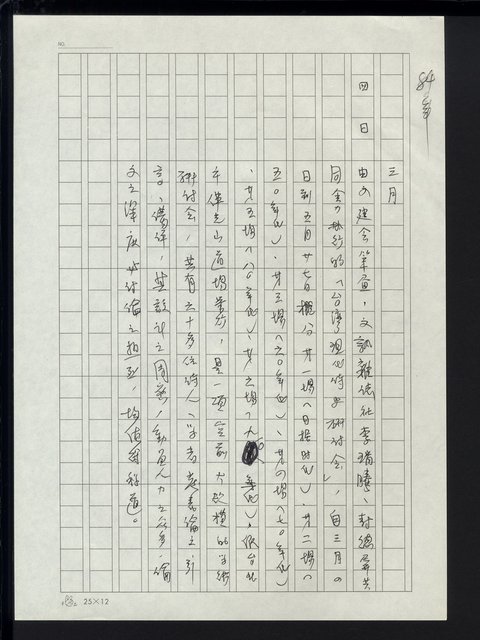 NO.
84年
三月
四日
由文建會策畫，文訊雜誌社李瑞騰、封德屏共
同企劃執行的「台灣現代詩史研討會」，自三月四
日到五月廿七日概分第一場（日據時代）、第二場（
五〇年代）、第三場（六〇年代）、第四場（七〇年代）
、第五場（八〇年代）、第六場（九〇年代），假台北
市佛光山道場舉行，是一項空前大規模的學術
研討會，共有六十多位詩人、學者發表論文、引
言、講評，其設計之周密，動員人力之眾多，論
文之深度與討論之熱烈，均值得稱道。
25×12